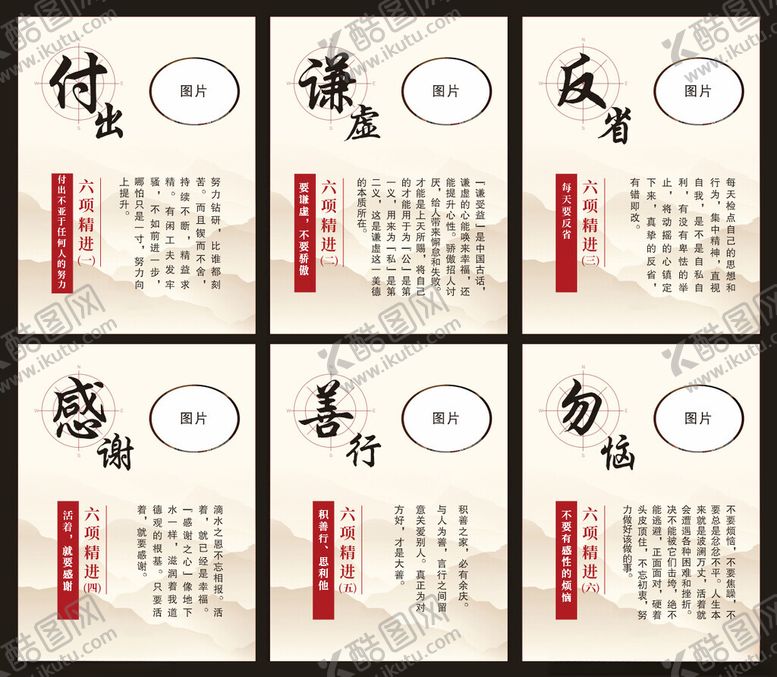 付出
图片
六项精进(一)
付出不亚于任何人的努力
努力钻研，比谁都刻
苦。而且锲而不舍，
持续不断，精益求
精。有闲工夫发牢
骚，不如前进一步，
哪怕只是一寸，努力向
上提升。
谦虚
图片
六项精进(二)
要谦虚，不要骄傲
“谦受益”是中国古话，
谦虚的心能唤来幸福，还
能提升心性。骄傲招人讨
厌，给人带来懈怠和失败。
才能是上天所赐，将自己
的才能用于为“公”是第
一义，用来为“私”是第
二义，这是谦虚这一美德
的本质所在。
反省
图片
六项精进(三)
每天要反省
每天检点自己的思想和
行为，集中精神，直视
自我，是不是自私自
利，有没有卑怯的举
止，将动摇的心镇定
下来，真挚的反省，
有错即改。
感谢
图片
六项精进(四)
活着，就要感谢
滴水之恩不忘相报。活
着，就已经是幸福。
“感谢之心”像地下
水一样，滋润着我道
德观的根基。只要活
着，就要感谢。
善行
图片
六项精进(五)
积善行、思利他
积善之家，必有余庆。
与人为善，言行之间留
意关爱别人。真正为对
方好，才是大善。
勿恼
图片
六项精进(六)
不要有感性的烦恼
不要烦恼，不要焦躁，不
要总是忿忿不平。人生本
来就是波澜万丈，活着就
会遭遇各种困难和挫折。
决不能被它们击垮，绝不
能逃避，正面面对，硬着
头皮顶住，不忘初衷，努
力做好该做的事。
酷图网
www.ikutu.com